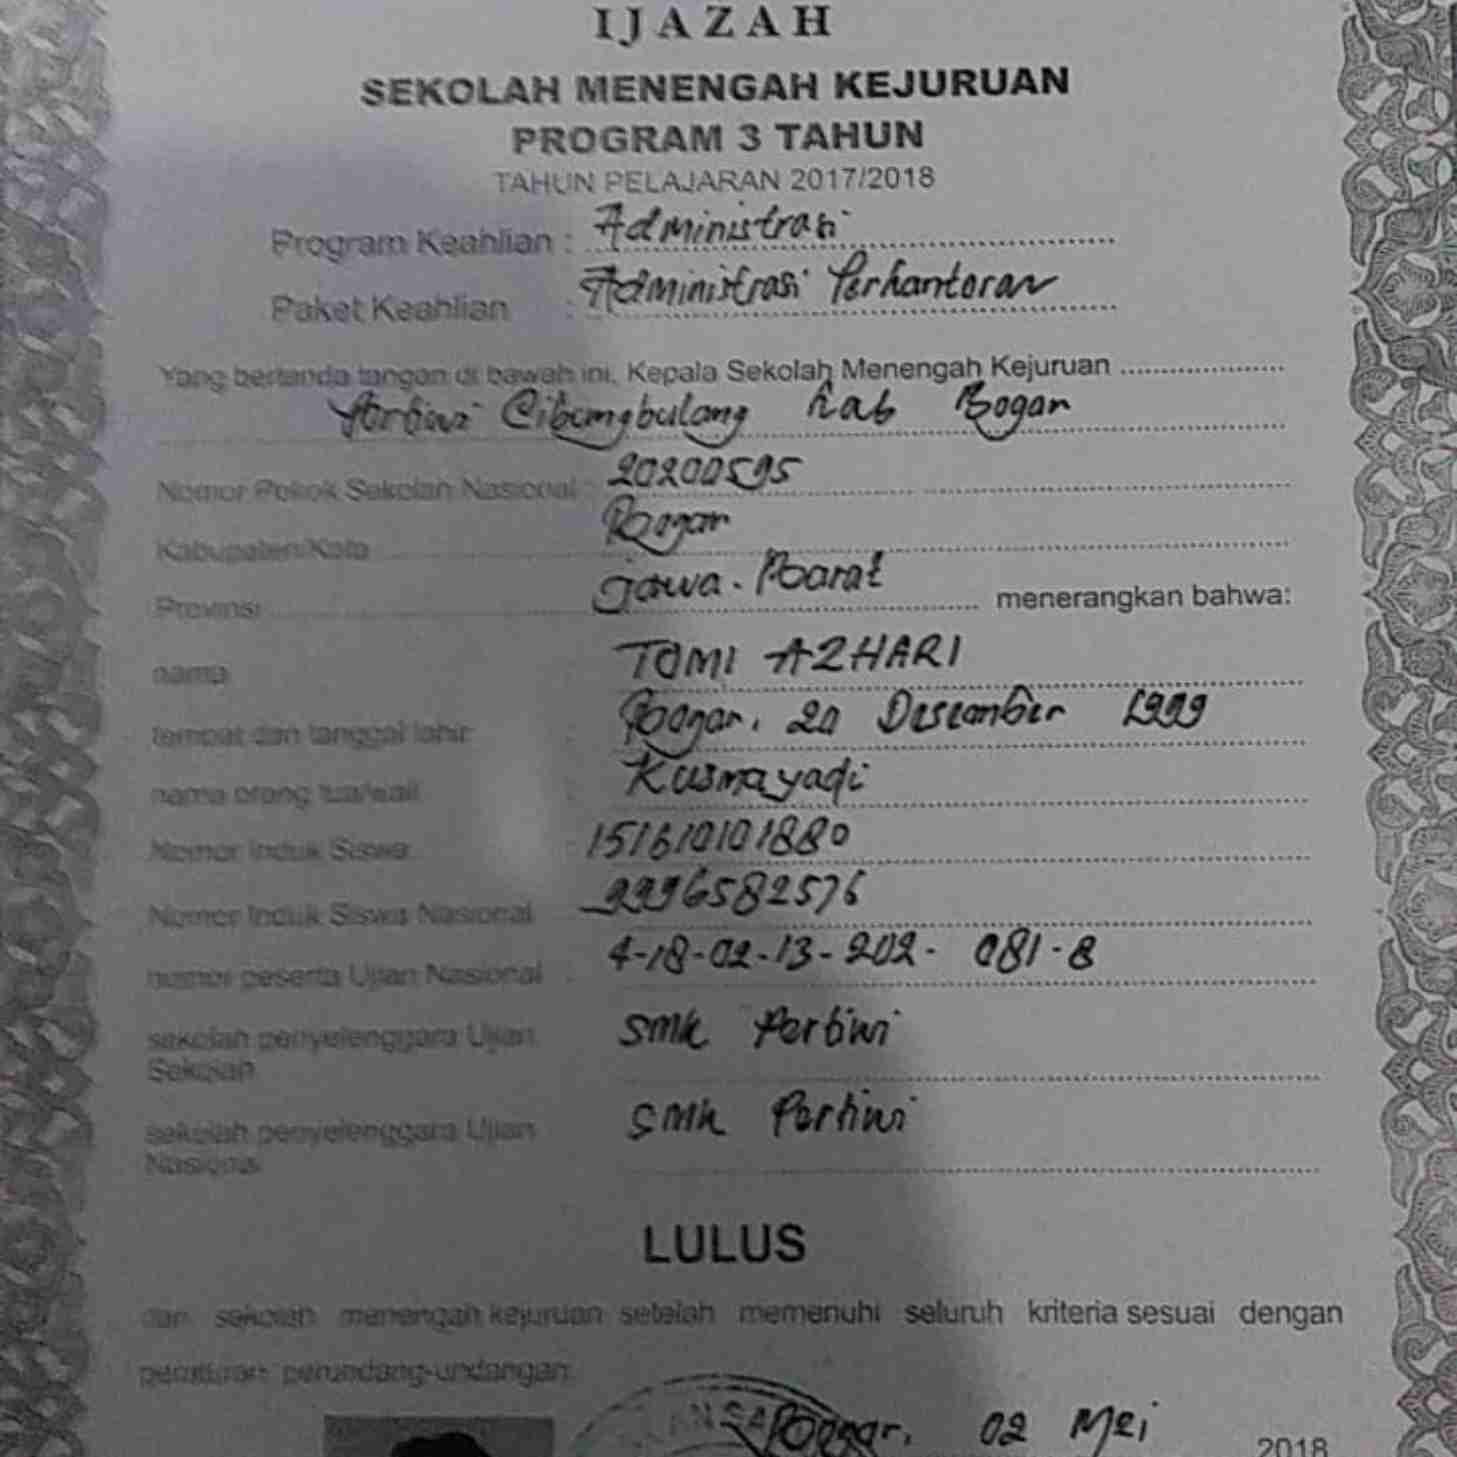 IJAZAH
SEKOLAH MENENGAH KEJURUAN
PROGRAM 3 TAHUN
TAHUN PELAJARAN 2017/2018
Program Keahlian : Administrasi
Paket Keahlian : Administrasi Perkantoran
Yang bertanda tangan di bawah ini, Kepala Sekolah Menengah Kejuruan
Pertiwi Cibungbulang Kab Bogor
Nomor Pokok Sekolah Nasional : 20200595
Kabupaten/Kota Bogor
Provinsi Jawa-Barat menerangkan bahwa:
nama : TOMI AZHARI
tempat dan tanggal lahir : Bogor, 20 Desember 1999
nama orang tua/wali : Kusmayadi
Nomor Induk Siswa : 151610101880
Nomor Induk Siswa Nasional 9996582576
nomor peserta Ujian Nasional : 4-18-02-13-202-081-8
sekolah penyelenggara Ujian SMK Pertiwi
Sekolah
sekolah penyelenggara Ujian SMK Pertiwi
Nasional
LULUS
dari sekolah menengah kejuruan setelah memenuhi seluruh kriteria sesuai dengan
peraturan perundang-undangan.
Bogor, 02 Mei 2018